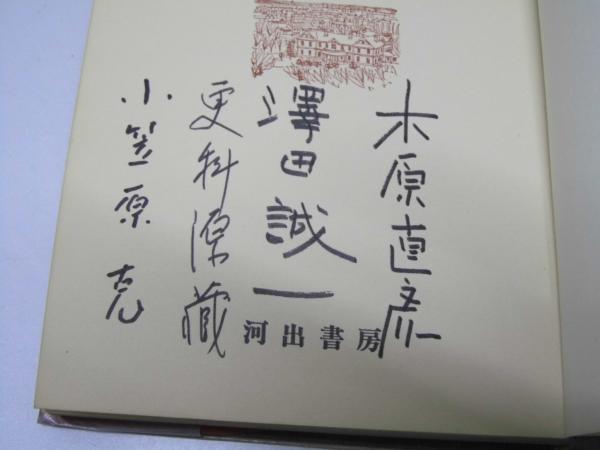 木原直彦
澤田誠一
更科源藏
小笠原克
河出書房